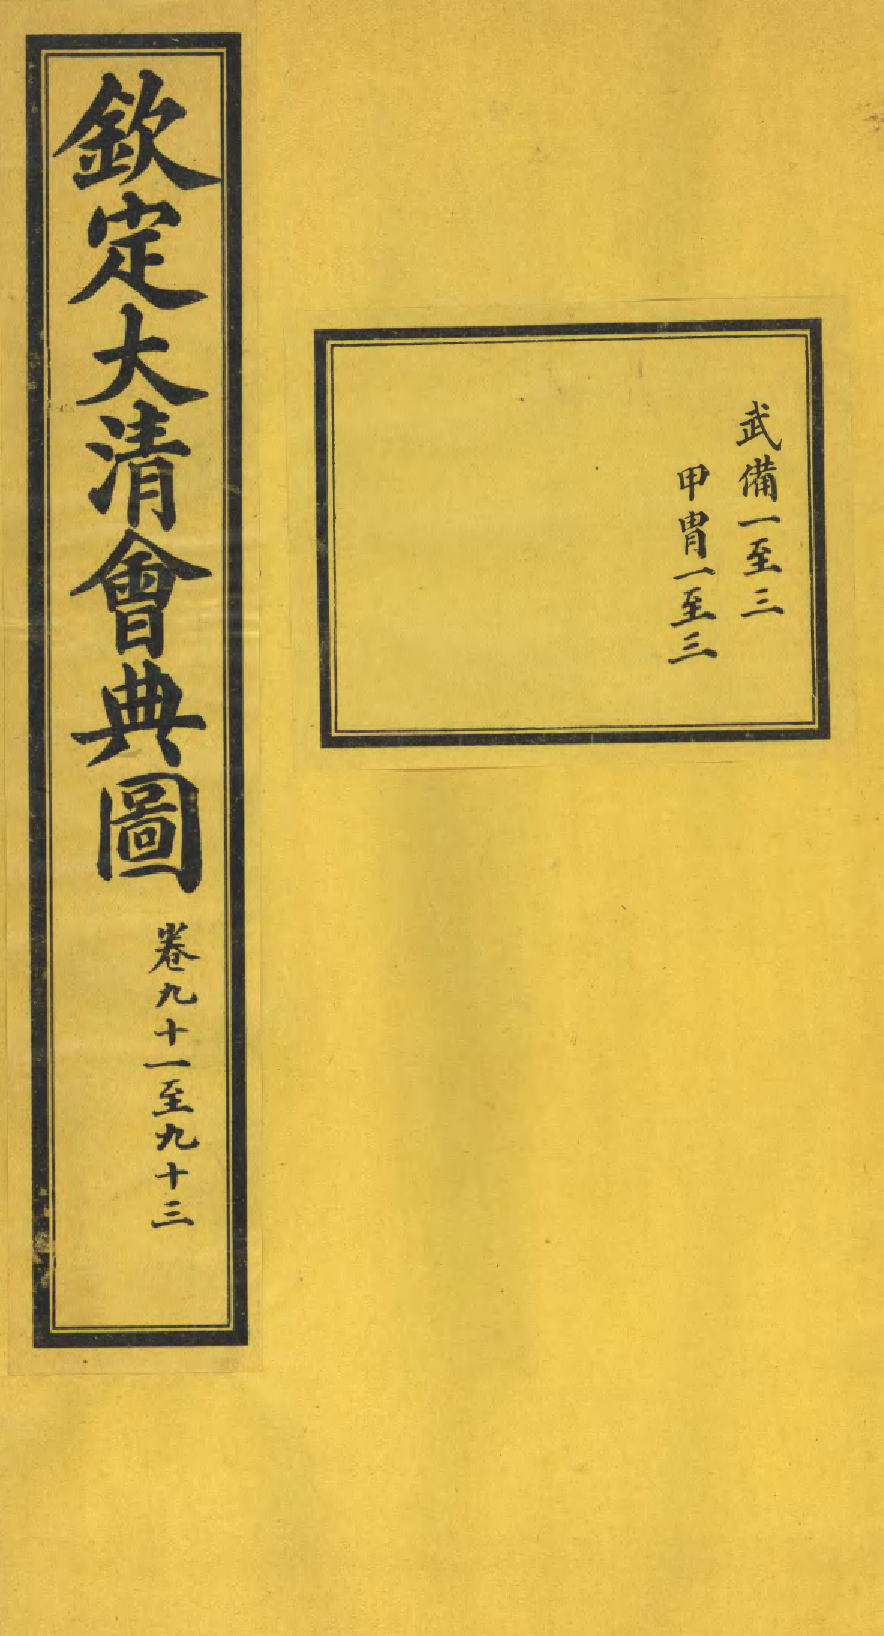 武備一至三
甲冑一至三
欽定大清會典圖
卷九十一至九十三